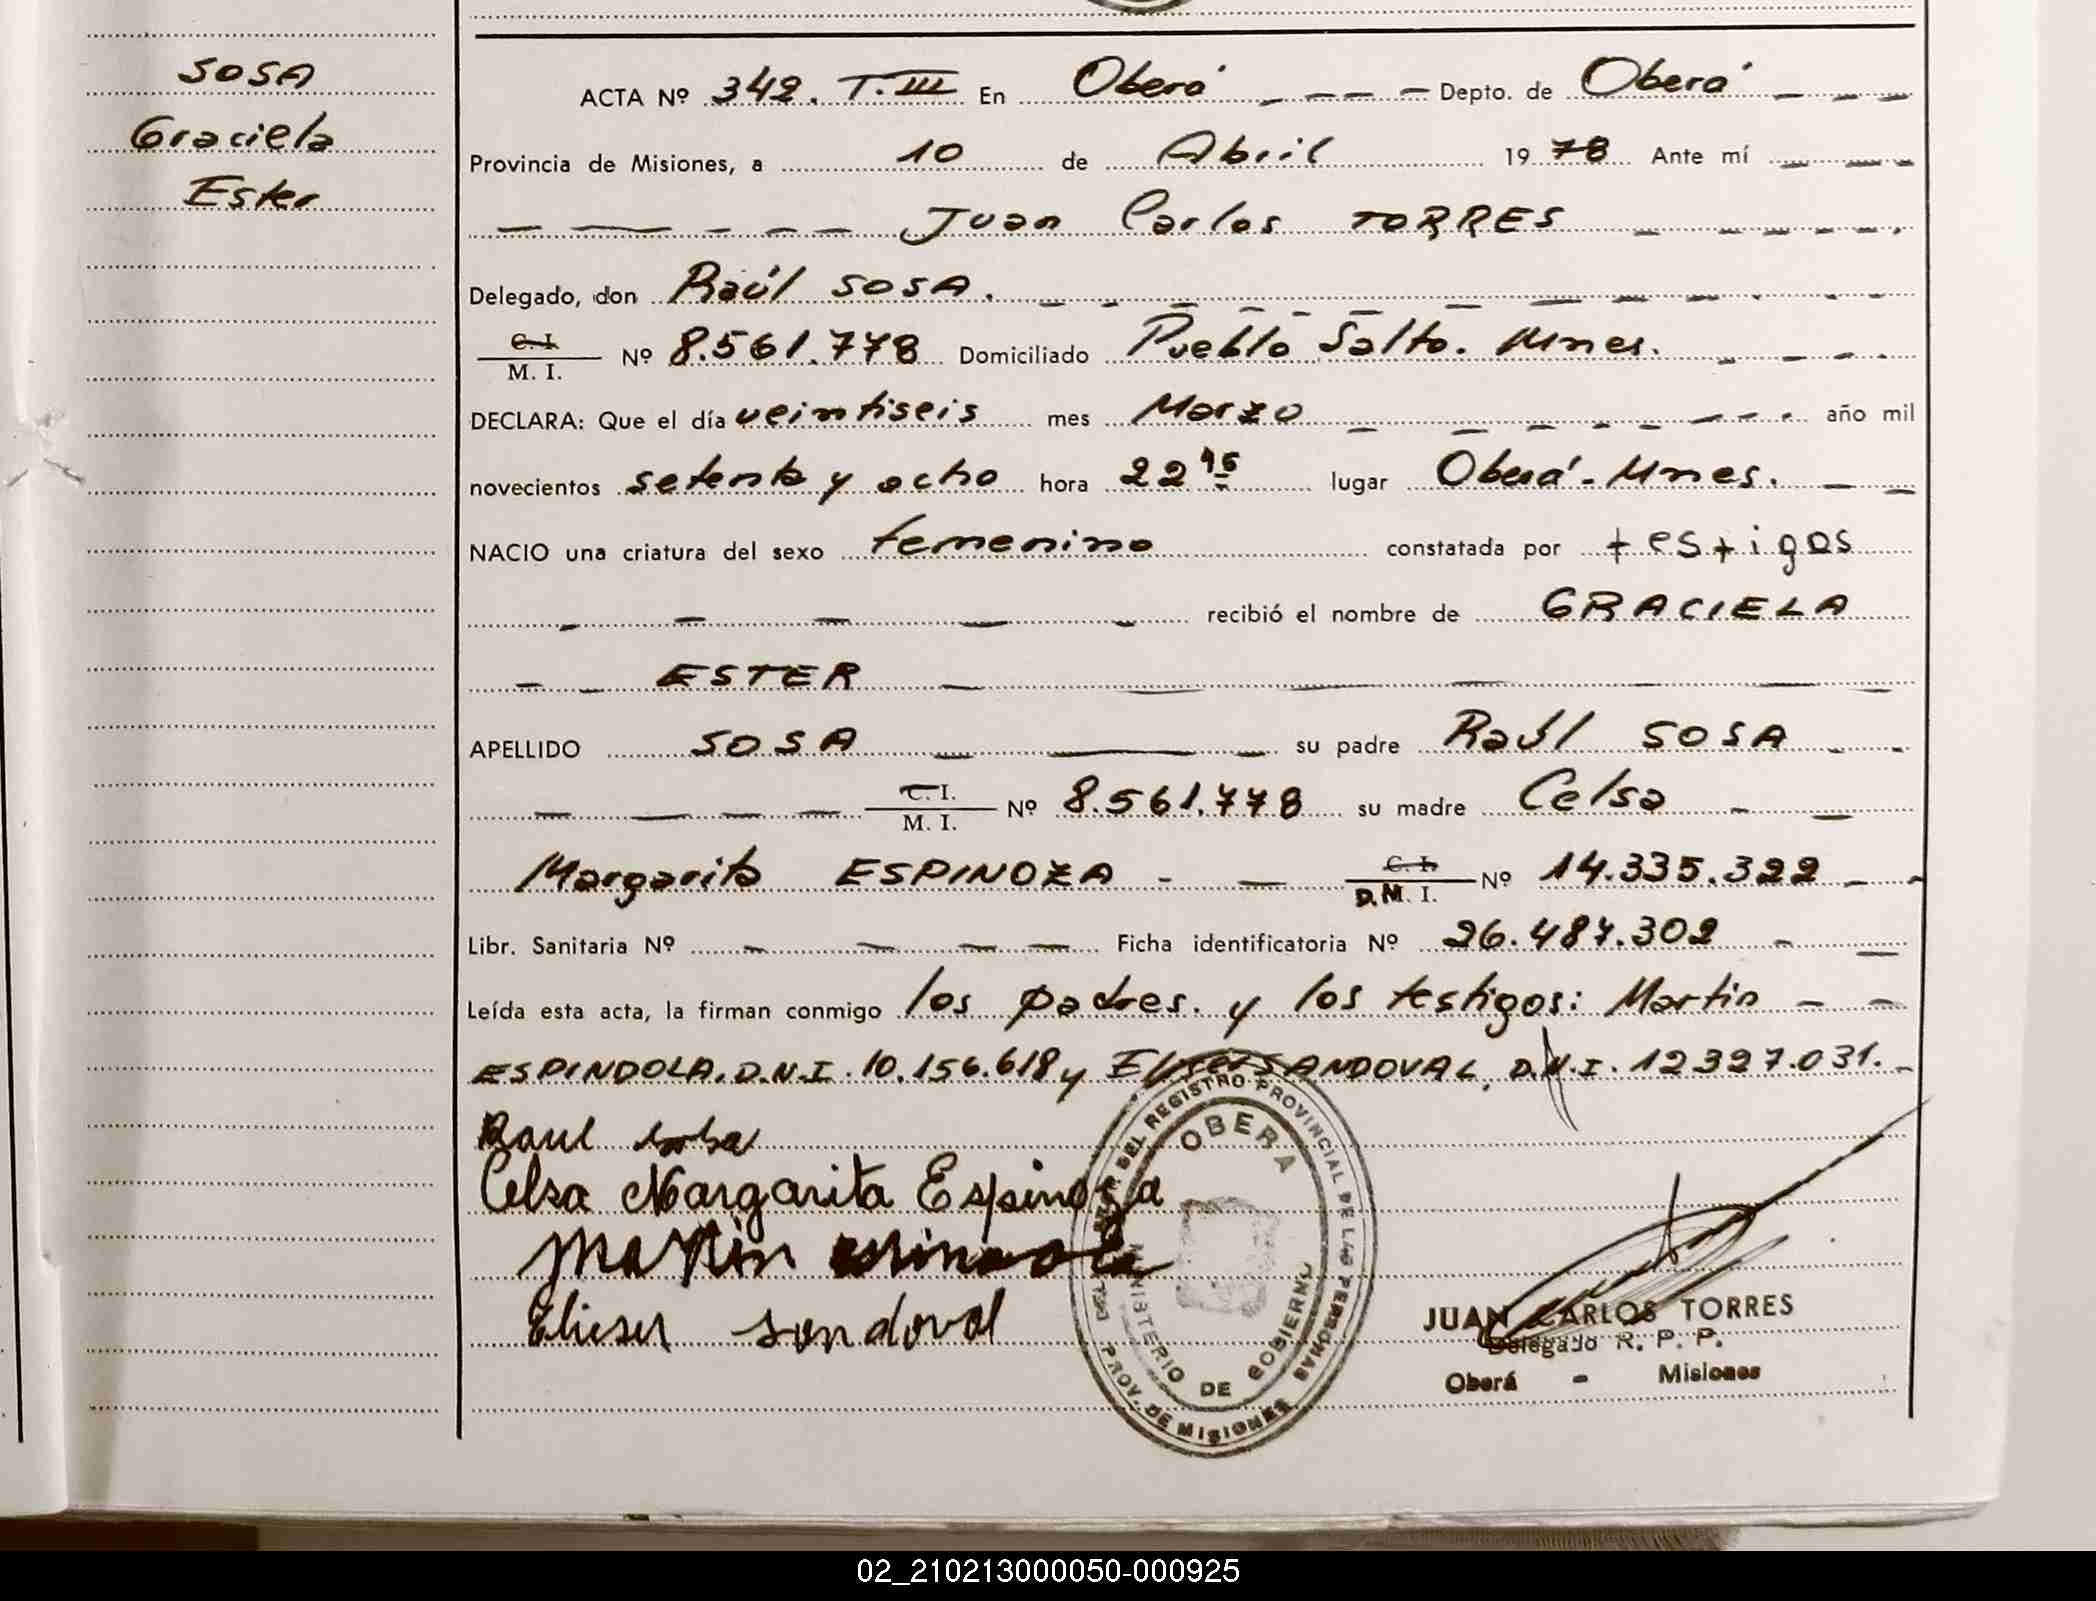 SOSA
Graciela
Ester
ACTA Nº 342. T. III En Oberá Depto. de Oberá
Provincia de Misiones, a 10 de Abril 1978 Ante mí
Juan Carlos TORRES
Delegado, don Raúl SOSA.
C. I.
M. I. Nº 8.561.778 Domiciliado Pueblo Salto. Mnes.
DECLARA: Que el día veintiseis mes Marzo año mil
novecientos setenta y ocho hora 22 45 lugar Oberá - Mnes.
NACIO una criatura del sexo femenino constatada por testigos
recibió el nombre de GRACIELA
ESTER
APELLIDO SOSA su padre Raúl SOSA
C. I.
M. I. Nº 8.561.778 su madre Celsa
Margarita ESPINOZA C. I.
D.M. I. Nº 14.335.322
Libr. Sanitaria Nº Ficha identificatoria Nº 26.487.302
Leída esta acta, la firman conmigo los padres. y los testigos: Martin
ESPINDOLA. D.N.I. 10.156.618 y SANDOVAL, D.N.I. 12327.031.
Raul sosa
Celsa Margarita Espinoza
Martin
Elieser Sandoval
DEL REGISTRO PROVINCIAL DE LAS PERSONAS
OBERA
MINISTERIO DE GOBIERNO
PROV. DE MISIONES
JUAN CARLOS TORRES
Delegado R. P. P.
Oberá - Misiones
02_210213000050-000925